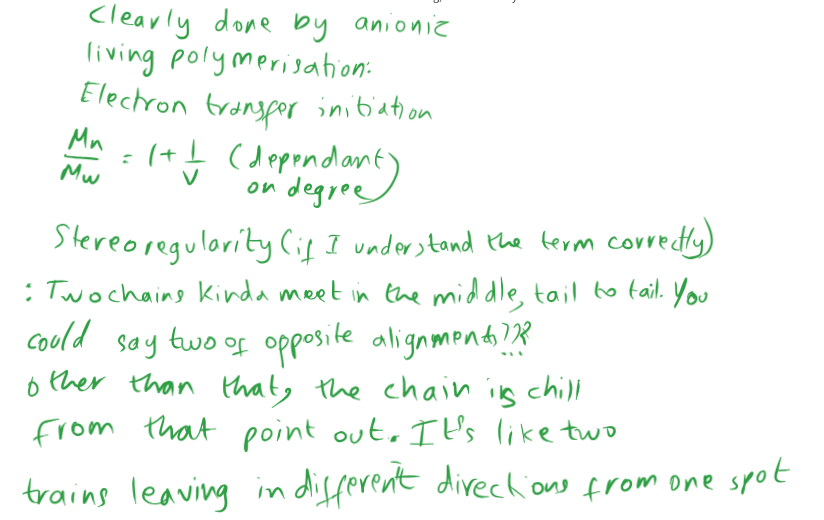 Clearly done by anionic
living polymerisation:
Electron transfer initiation
Mn/Mw = 1 + 1/v (dependant
on degree)
Stereoregularity (if I understand the term correctly)
: Two chains kinda meet in the middle, tail to tail. You
could say two of opposite alignments???
...
other than that, the chain is chill
from that point out. It's like two
trains leaving in different directions from one spot